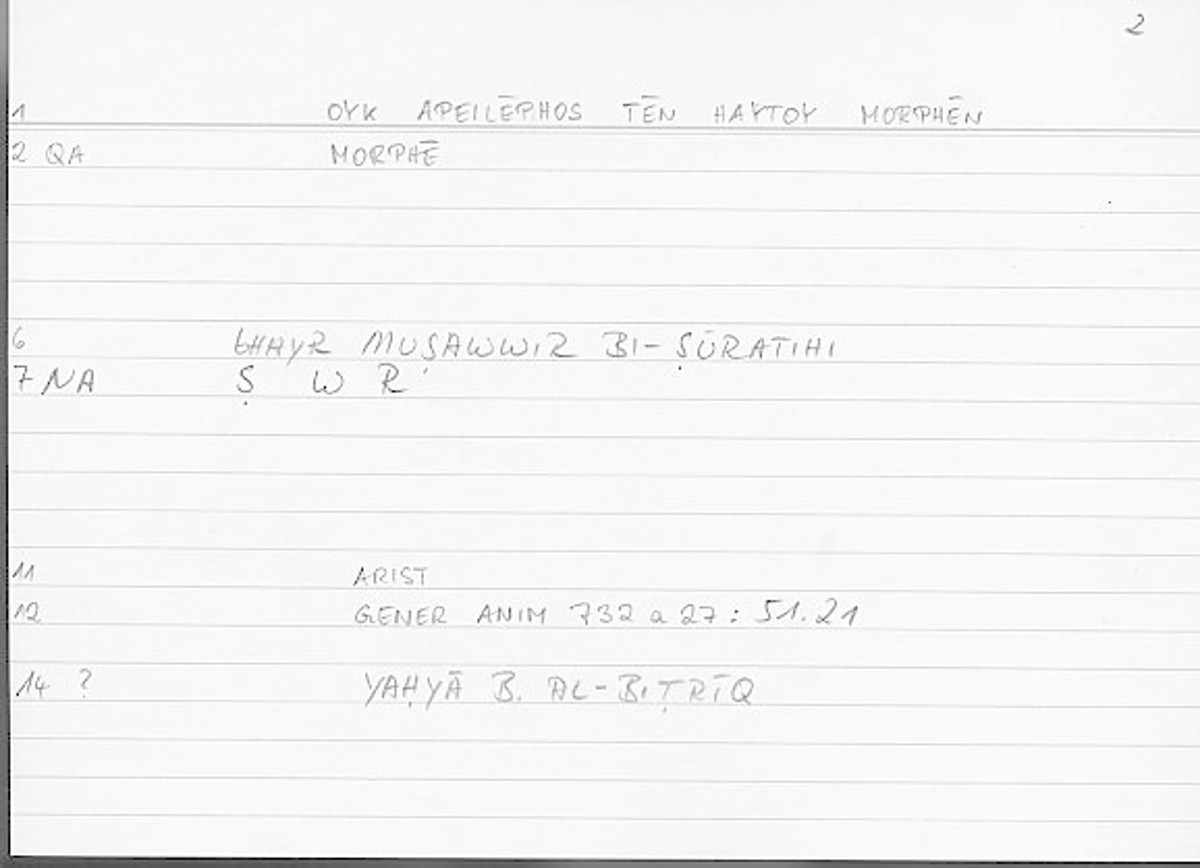 2
1 OYK APEILĒPHOS TĒN HAYTOY MORPHĒN
2 QA MORPHĒ
6 GHAYR MUṢAWWIR BI-ṢŪRATIHI
7 NA Ṣ W R
11 ARIST
12 GENER ANIM 732 a 27 : 51.21
14 ? YAḤYĀ B. AL-BIṬRĪQ